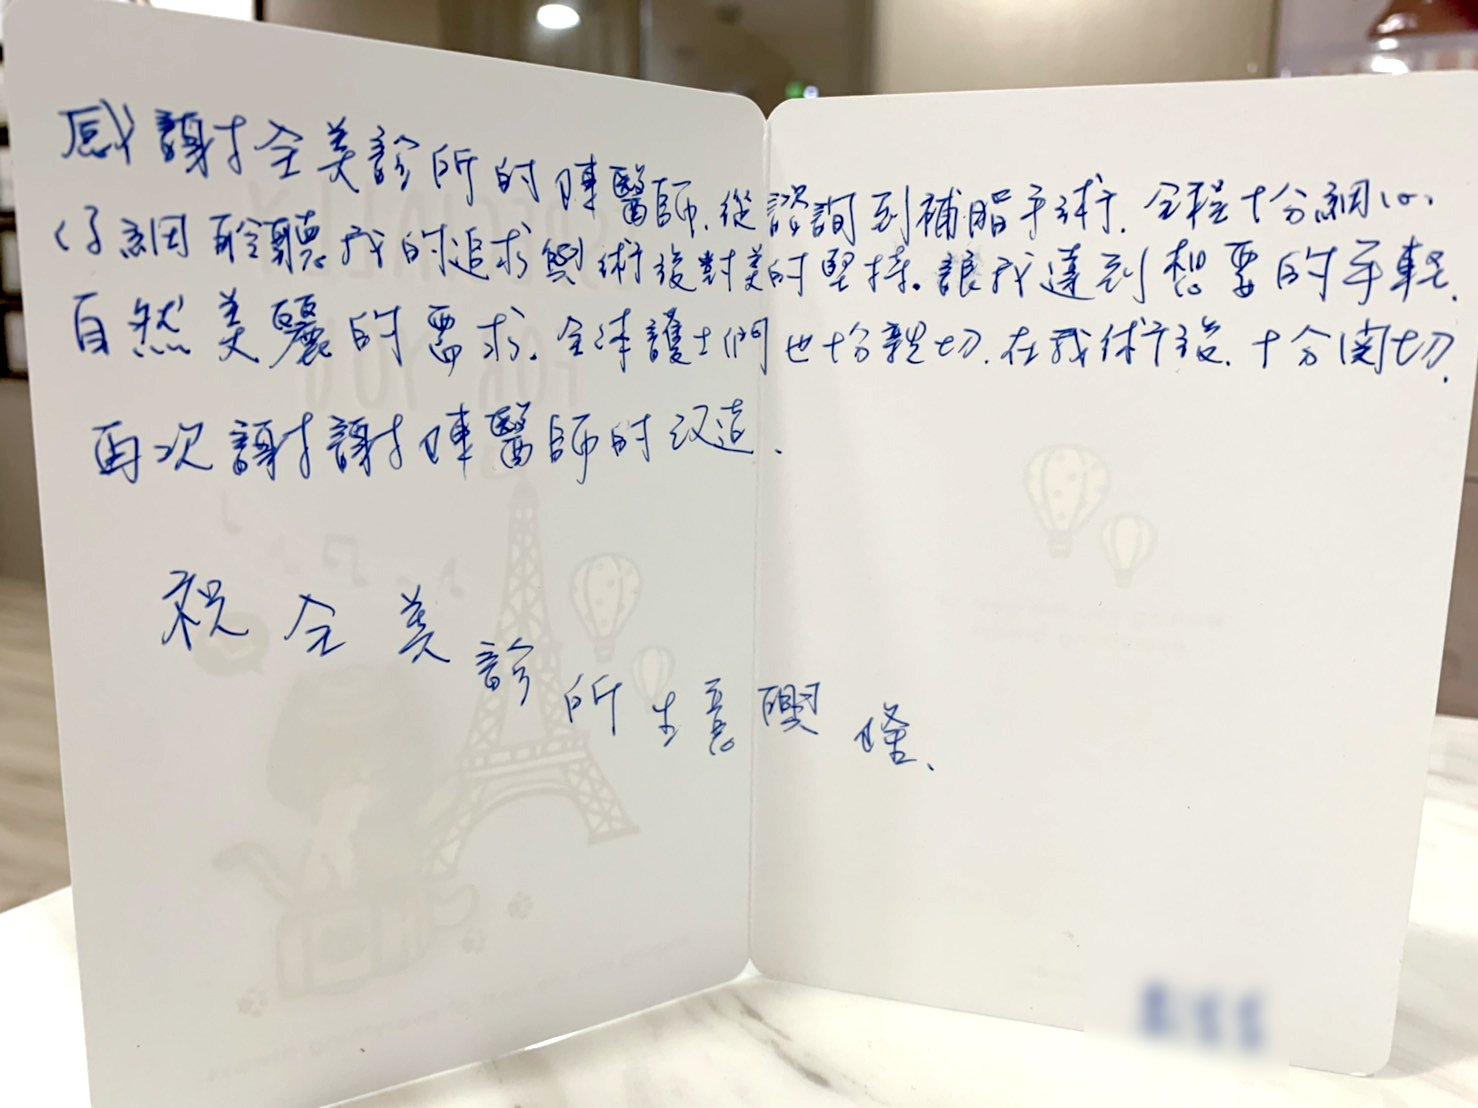 感謝全美診所的陳醫師.從諮詢到補脂手術.全程十分細心.
仔細聆聽我的追求與術後對美的堅持.讓我達到想要的年輕.
自然美麗的需求.全体護士們也十分親切.在我術後.十分関切.
再次謝謝陳醫師的改造.
祝全美診所生意興隆、
SPECIALLY
FOR YOU